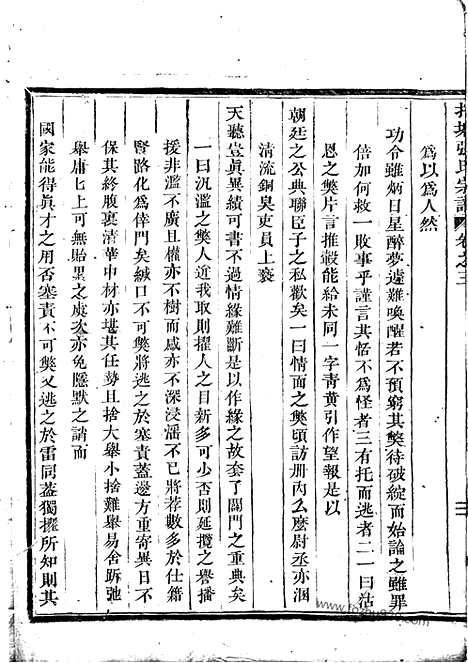 張氏宗譜 卷之三
為以為人然
功令雖炳日星醉夢遽難喚醒若不預窮其獘待破綻而始論之雖罪
倍加何救一敗事乎謹言其恬不為怪者三有托而逃者二一曰沽
恩之獘片言推轂能給未同一字青黃引作望報是以
朝廷之公典聯臣子之私歡矣一曰情面之獘頃訪册內么麼尉丞亦溷
清流銅臭吏員上褻
天聽豈眞異績可書不過情緣難斷是以作緣之故套了闢門之重典矣
一曰沉濫之獘人近我取則擢人之目新多可少否則延攬之譽播
援非濫不廣且權亦不樹而威亦不深浸淫不已將荐數多於仕籍
賢路化為倖門矣緘口不可獘將逃之於塞責蓋邊方重寄異日不
保其終腹裏清華中材亦堪其任勢且捨大舉小捨難舉易舍跅弛
舉庸匕上可無貽累之虞次亦免隱默之誚而
國家能得眞才之用否塞責不可獘又逃之於雷同蓋獨擢所知則其